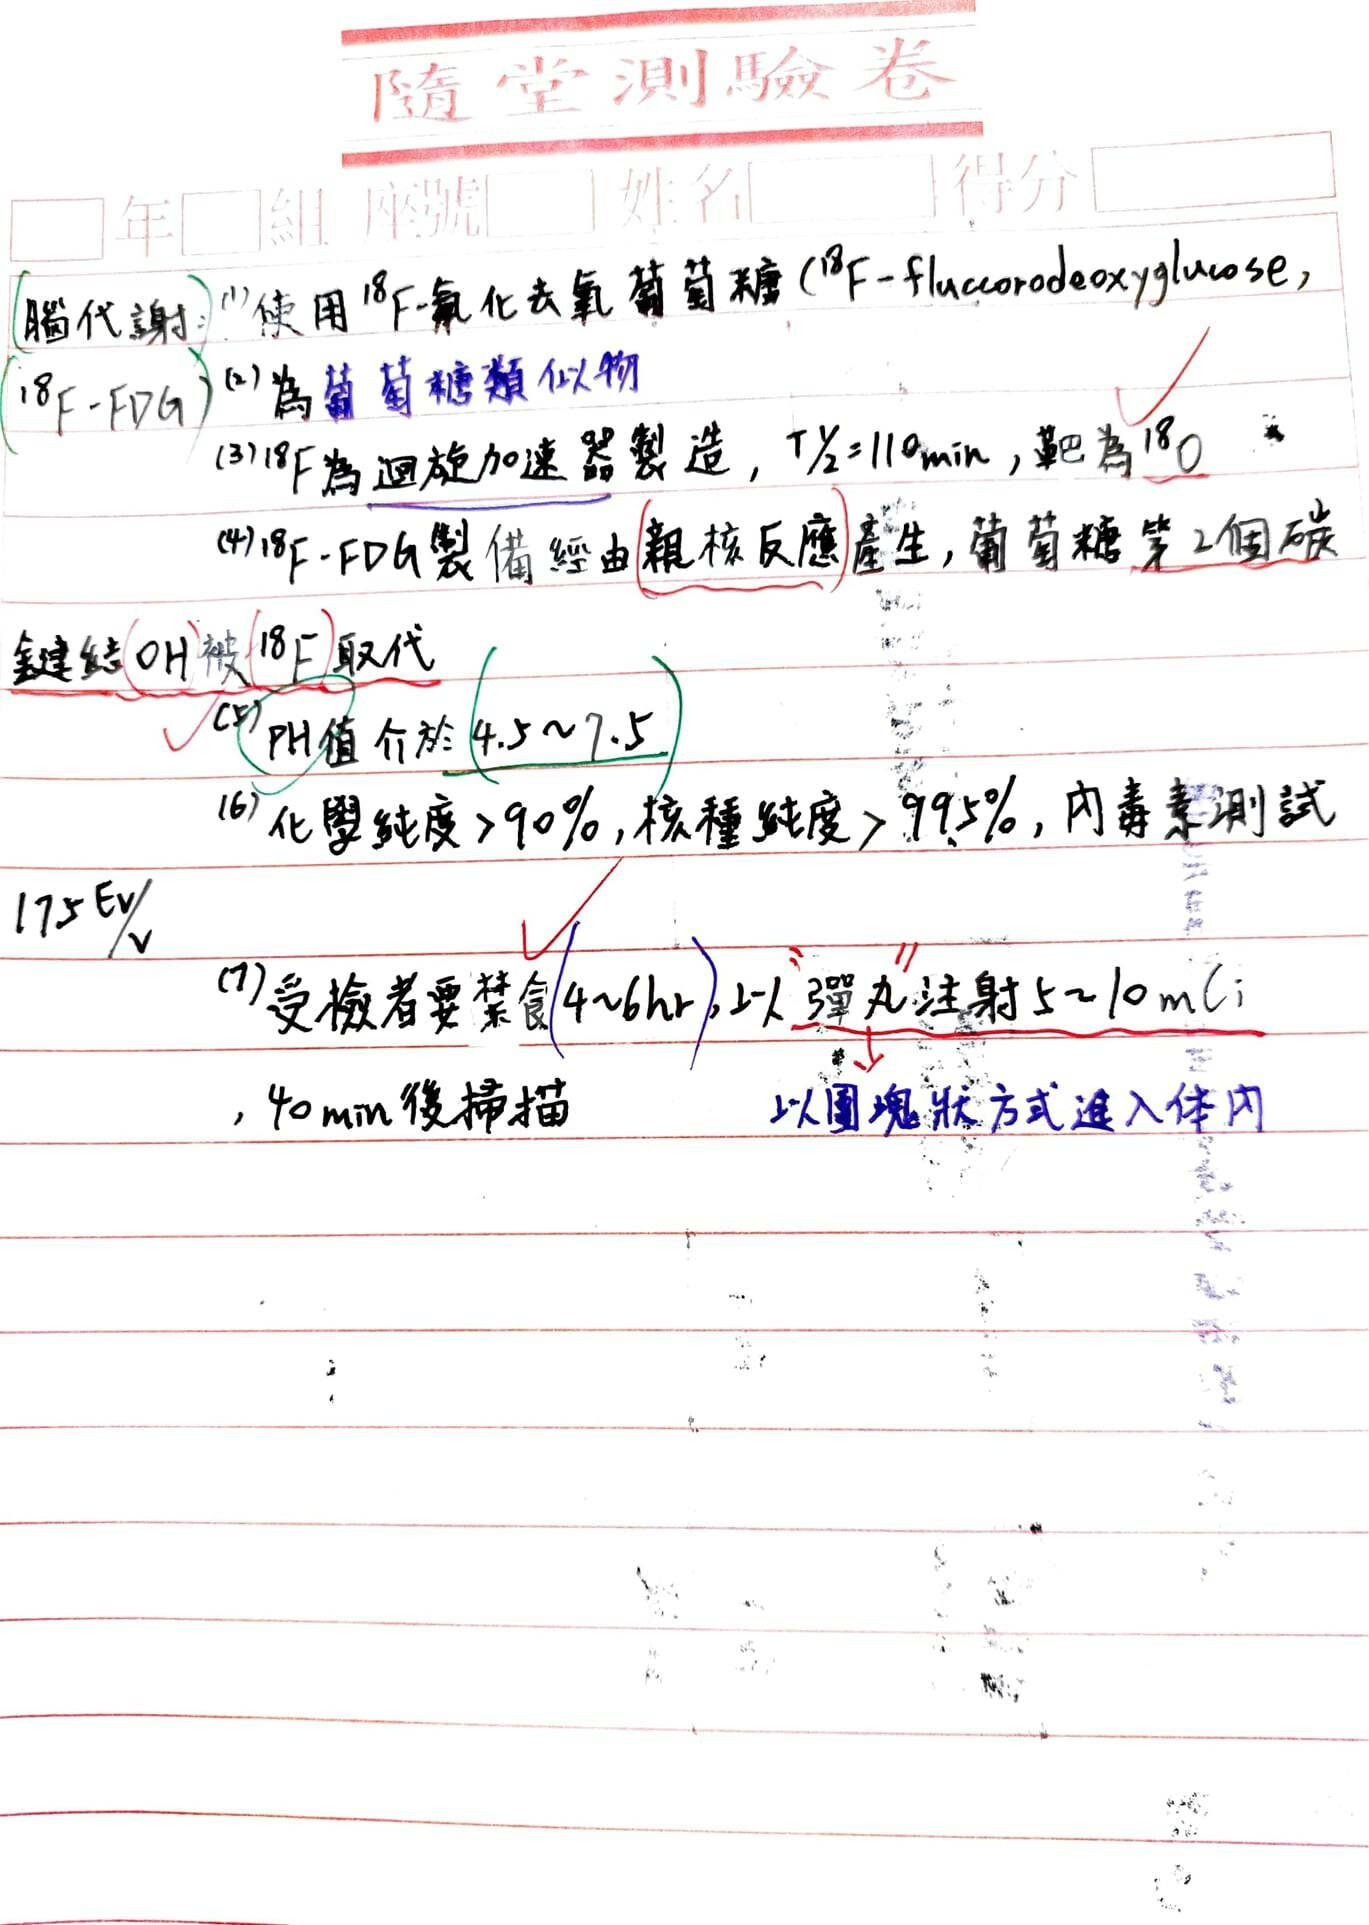 隨堂測驗卷
年 組 座號 姓名 得分
腦代謝: (1) 使用 ¹⁸F-氟化去氧葡萄糖 (¹⁸F-fluccorodeoxyglucose,
¹⁸F-FDG) (2) 為葡萄糖類似物
(3) ¹⁸F為迴旋加速器製造, T½=110min, 靶為¹⁸O
(4) ¹⁸F-FDG製備經由(親核反應)產生, 葡萄糖第2個碳
鍵結(OH)被(¹⁸F)取代
(5) PH值介於(4.5~7.5)
(6) 化學純度>90%, 核種純度>99.5%, 內毒素測試
175 EV/V
(7) 受檢者要禁食(4~6hr), 以"彈丸"注射5~10mCi
, 40min後掃描 以團塊狀方式進入体內